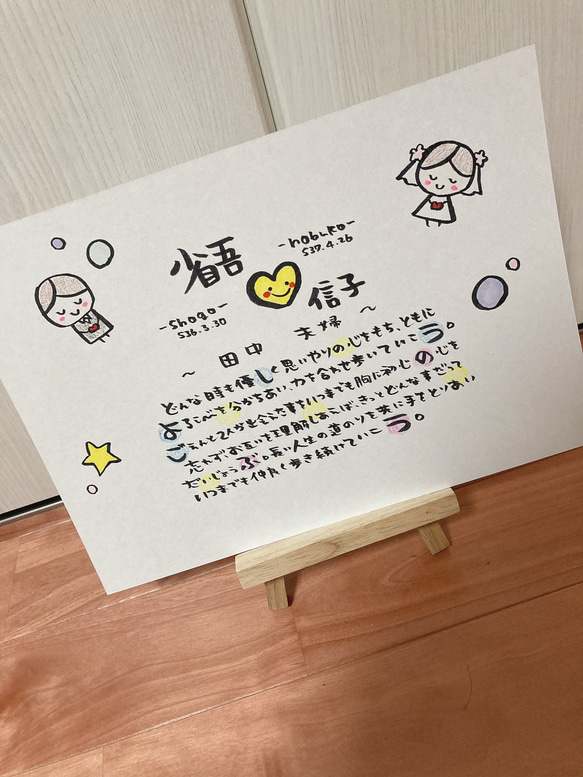 省吾
-nobuko-
S37.4.26
-shogo-
S36.3.30
信子
~ 田中 夫婦 ~
どんな時も優しく思いやりの心をもち、ともに
よろこびを分かちあい、力を合わせ歩いていこう。
ごえんと出会えた事をいつまでも胸に初心の心を
忘れず、お互いを理解しあえば、きっとどんなだって
だいじょうぶ。長い人生の道のりを共に手をとりあい
いつまでも仲良く歩き続けていこう。